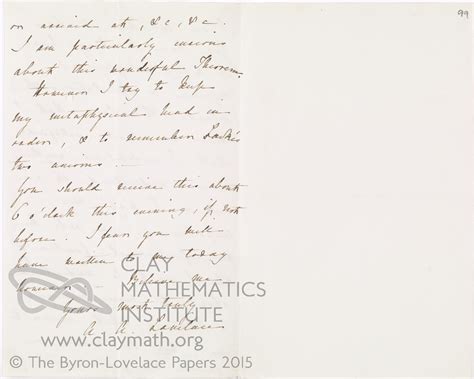 99
or arrived at, &c, &c.
I am particularly curious
about this wonderful Theorem.
However I try to keep
my metaphysical head in
order, & to remember Locke's
two axioms.
You should receive this about
6 o'clock this evening, if not
before. I fear you will
have written to me today
Believe me
Yours most truly
A. A. Lovelace
CLAY
MATHEMATICS
INSTITUTE
www.claymath.org
© The Byron-Lovelace Papers 2015